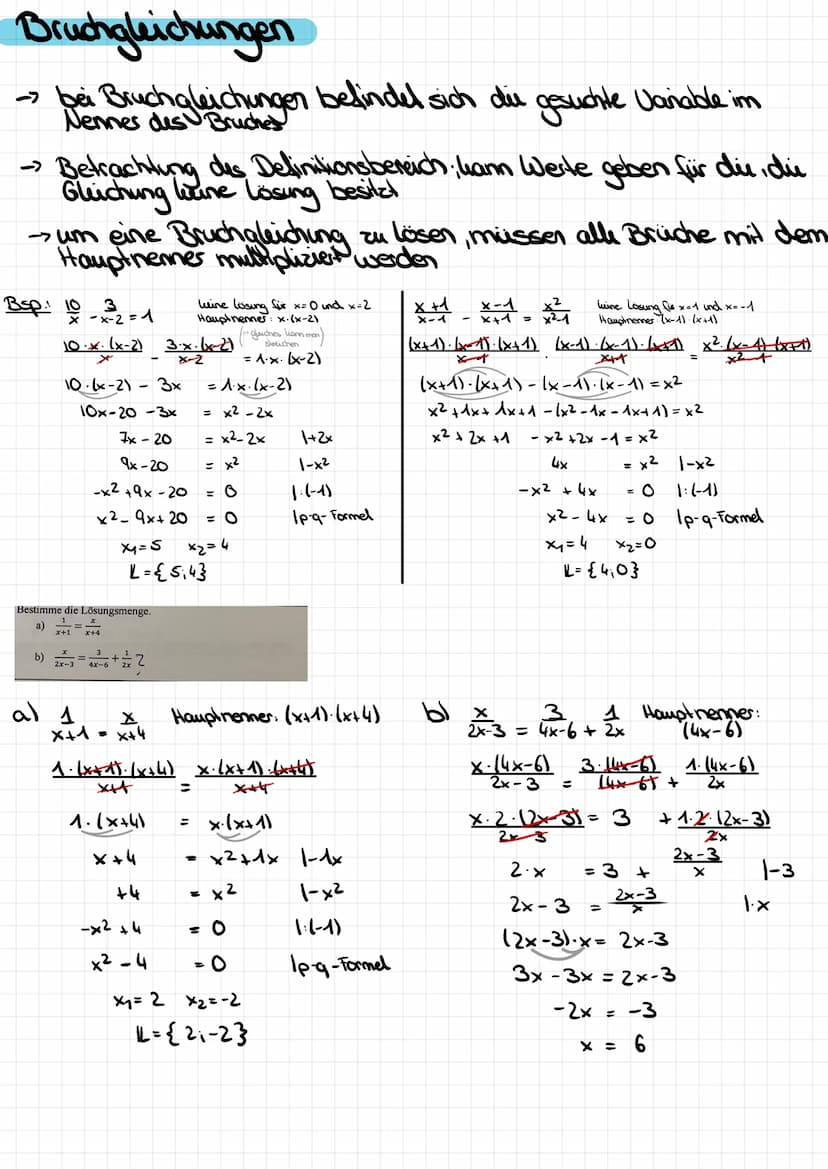 Bruchgleichungen
→ bei Bruchgleichungen befindet sich die gesuchte Variable im
Nenner des Bruches
→ Betrachtung des Definitionsbereich; kann Werte geben für die, die
Gleichung keine Lösung besitzt
→ um eine Bruchgleichung zu lösen, müssen alle Brüche mit dem
Hauptnenner multipliziert werden
Bsp.: 10/x - 3/x-2 = 1 keine Lösung für x=0 und x=2
Hauptnenner: x·(x-2)
(→ gleiches kann man streichen)
10·x·(x-2)/x - 3·x·(x-2)/x-2 = 1·x·(x-2)
10·(x-2) - 3x = 1·x·(x-2)
10x-20 -3x = x²-2x
7x-20 = x²-2x |+2x
9x-20 = x² |-x²
-x²+9x-20 = 0 |·(-1)
x²-9x+20 = 0 |p-q-Formel
x₁=5 x₂=4
L={5;4}
x+1/x-1 - x-1/x+1 = x²/x²-1 keine Lösung für x=1 und x=-1
Hauptnenner (x-1)·(x+1)
(x+1)·(x-1)·(x+1)/x-1 - (x-1)·(x-1)·(x+1)/x+1 = x²·(x-1)·(x+1)/x²-1
(x+1)·(x+1) - (x-1)·(x-1) = x²
x²+1x+1x+1 -(x²-1x-1x+1) = x²
x²+2x+1 -x²+2x-1 = x²
4x = x² |-x²
-x²+4x = 0 |:(-1)
x²-4x = 0 |p-q-Formel
x₁=4 x₂=0
L={4;0}
Bestimme die Lösungsmenge.
a) 1/x+1 = x/x+4
b) x/2x-3 = 3/4x-6 + 1/2x ?
a) 1/x+1 = x/x+4 Hauptnenner: (x+1)·(x+4)
1·(x+1)·(x+4)/x+1 = x·(x+1)·(x+4)/x+4
1·(x+4) = x·(x+1)
x+4 = x²+1x |-1x
+4 = x² |-x²
-x²+4 = 0 |:(-1)
x²-4 = 0 |p-q-Formel
x₁=2 x₂=-2
L={2;-2}
b) x/2x-3 = 3/4x-6 + 1/2x Hauptnenner:
(4x-6)
x·(4x-6)/2x-3 = 3·(4x-6)/(4x-6) + 1·(4x-6)/2x
x·2·(2x-3)/2x-3 = 3 + 1·2·(2x-3)/2x
2·x = 3 + 2x-3/x |-3
2x-3 = 2x-3/x |·x
(2x-3)·x = 2x-3
3x-3x = 2x-3
-2x = -3
x = 6